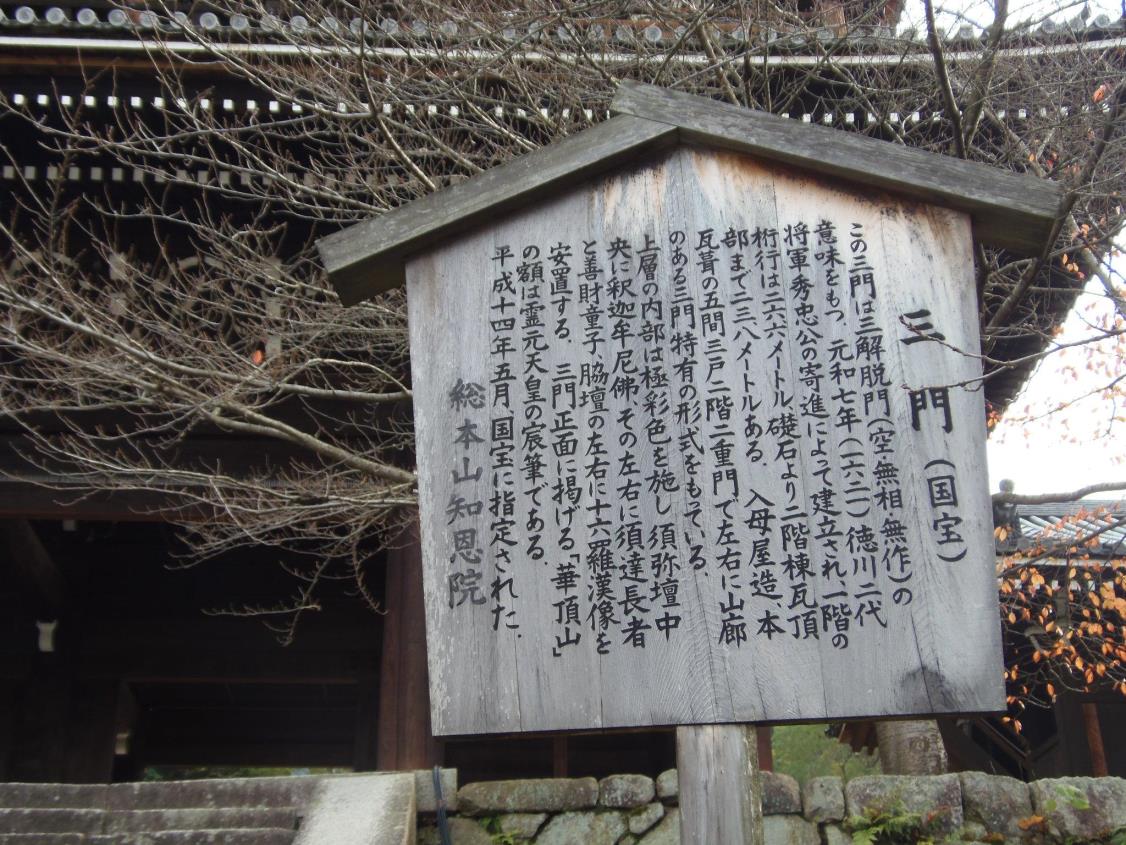 三門(国宝)
この三門は三解脱門(空・無相・無作)の
意味をもつ。元和七年(一六二一)徳川二代
将軍秀忠公の寄進によって建立され、一階の
桁行は二六・六メートル、礎石より二階棟瓦頂
部まで二三・八メートルある。入母屋造、本
瓦葺の五間三戸二階二重門で左右に山廊
のある三門特有の形式をもっている。
上層の内部は極彩色を施し須弥壇中
央に釈迦牟尼佛、その左右に須達長者
と善財童子、脇壇の左右に十六羅漢像を
安置する。三門正面に掲げる「華頂山」
の額は霊元天皇の宸筆である。
平成十四年五月、国宝に指定された。
総本山知恩院